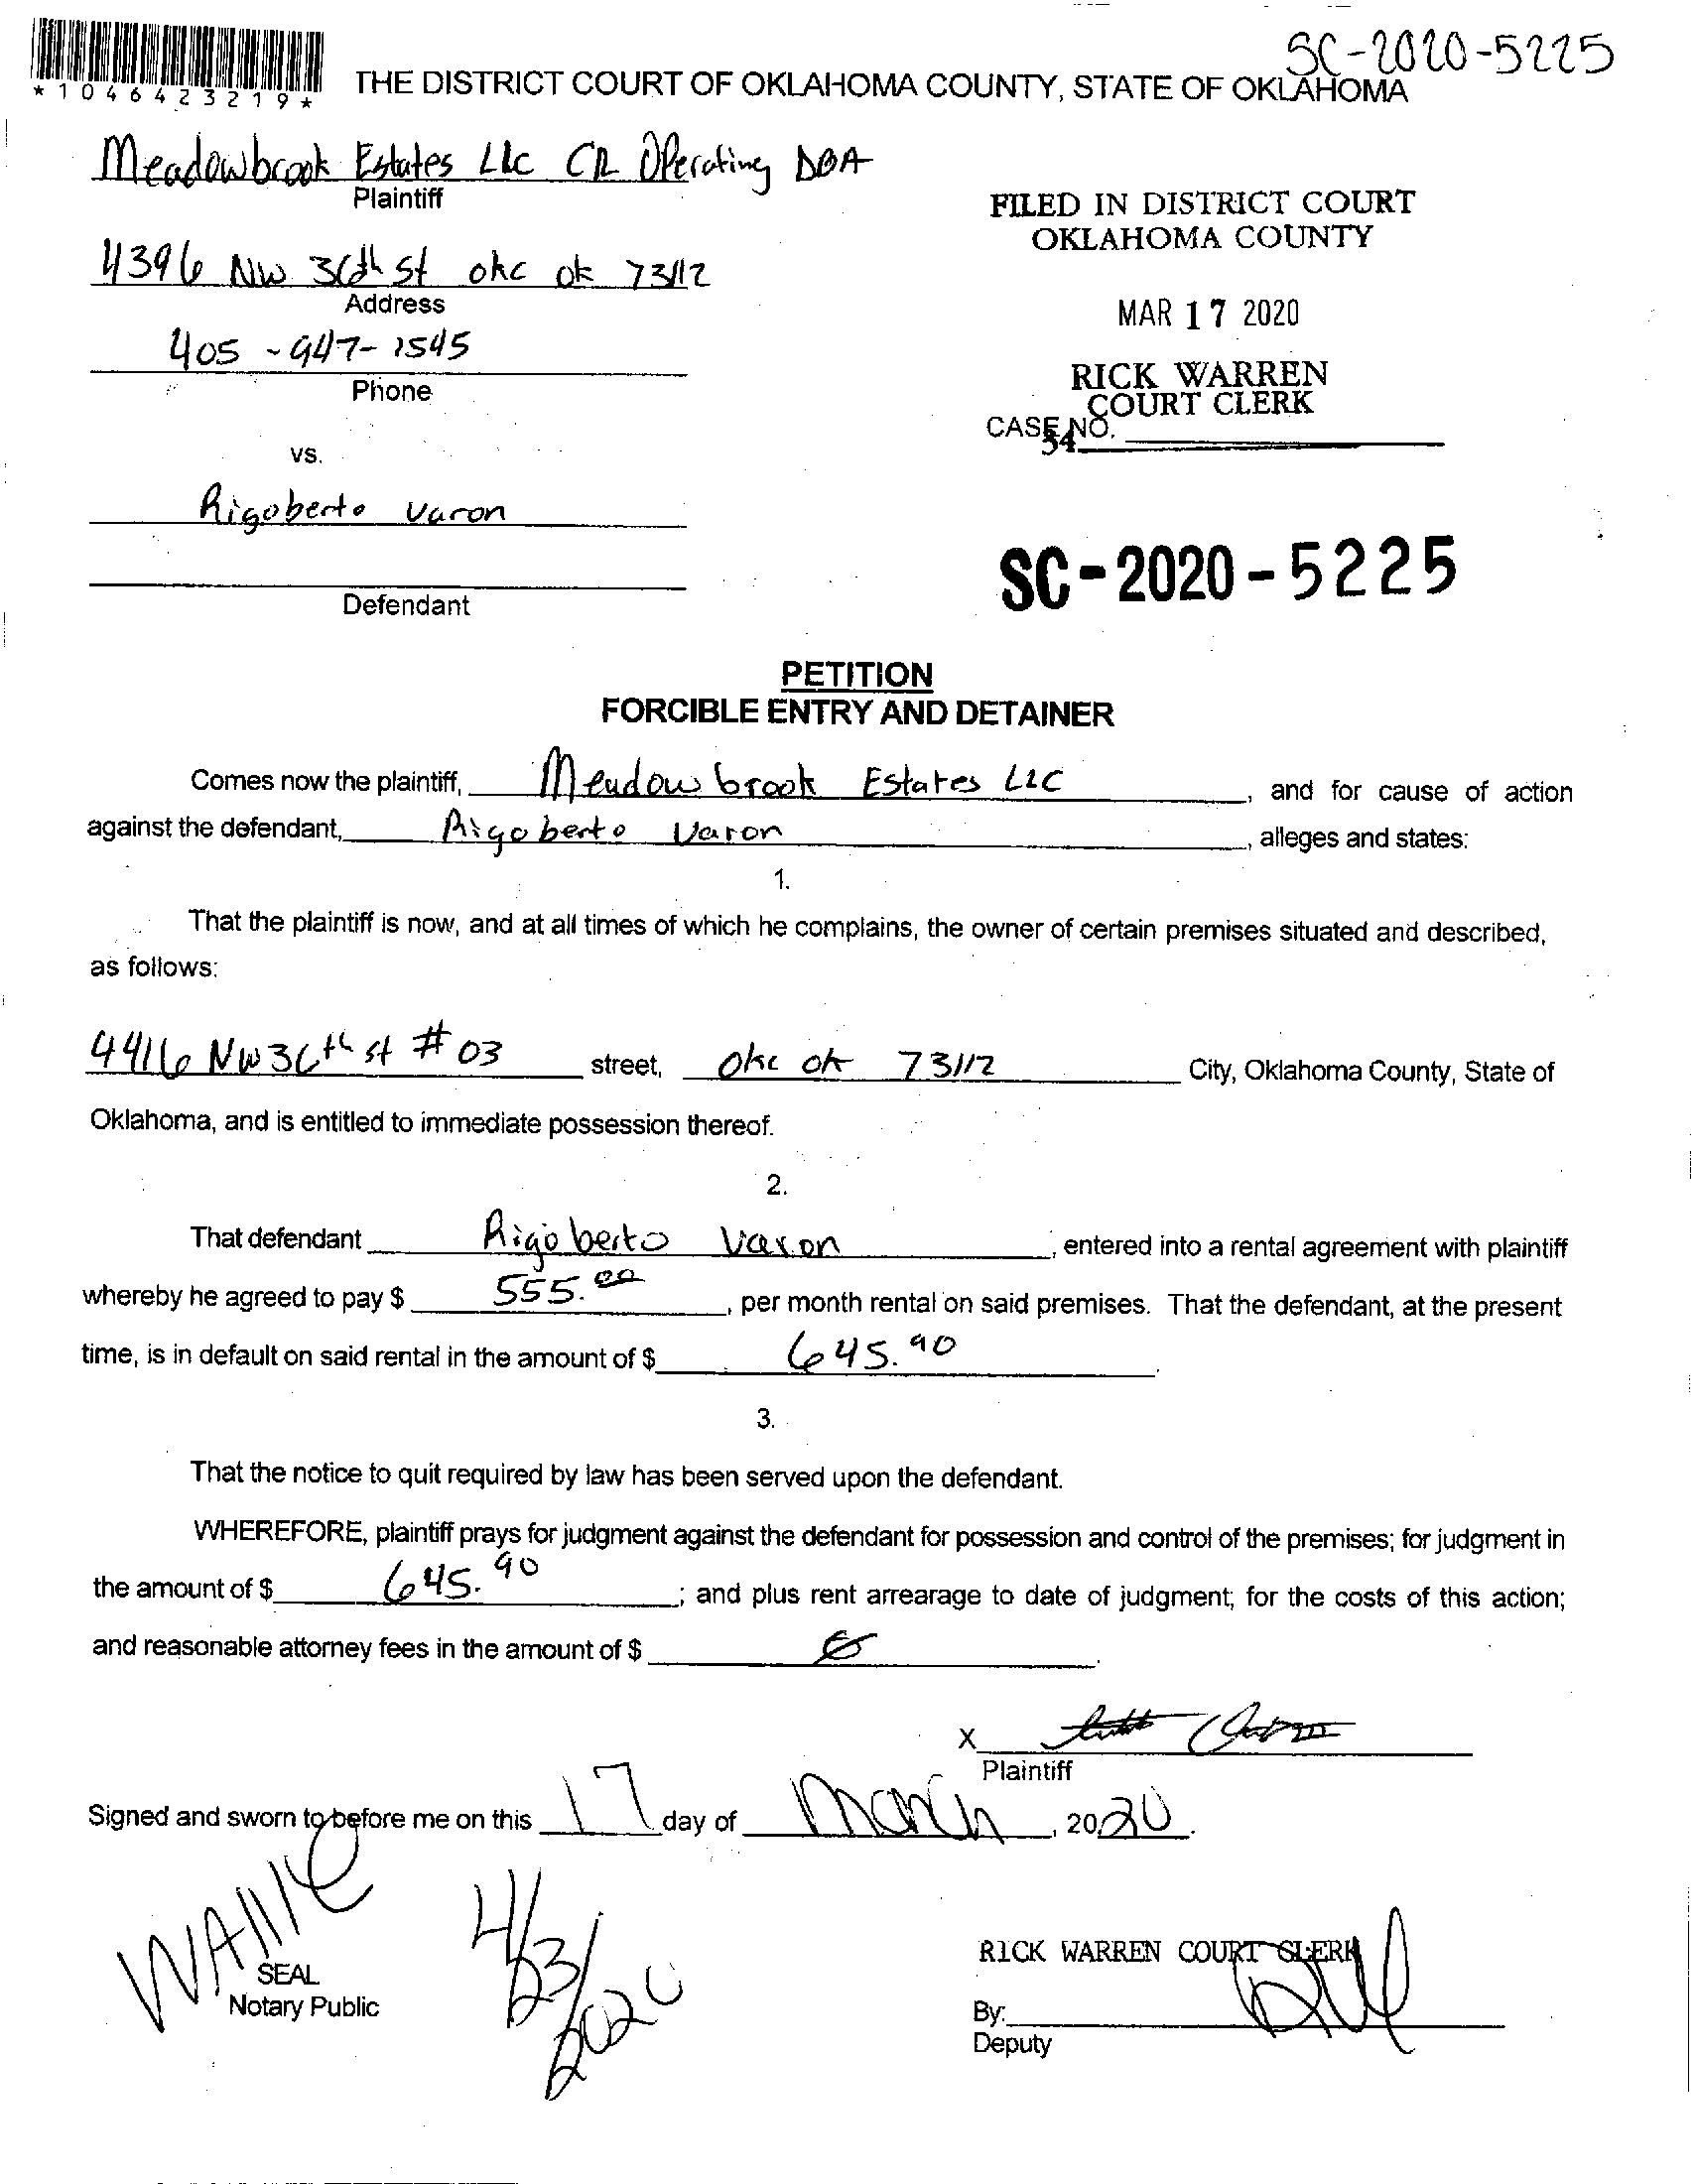 SC-2020-5225
*1046423219*
THE DISTRICT COURT OF OKLAHOMA COUNTY, STATE OF OKLAHOMA
Meadowbrook Estates LLC CR Operating DBA
Plaintiff
FILED IN DISTRICT COURT
OKLAHOMA COUNTY
4396 NW 36th st okc ok 73112
Address
MAR 17 2020
405-947-1545
Phone
RICK WARREN
COURT CLERK
CASE NO.
34
vs.
Rigoberto Varon
SC-2020-5225
Defendant
PETITION
FORCIBLE ENTRY AND DETAINER
Comes now the plaintiff, Meadowbrook Estates LLC, and for cause of action
against the defendant, Rigoberto Varon, alleges and states:
1.
That the plaintiff is now, and at all times of which he complains, the owner of certain premises situated and described,
as follows:
4416 NW 36th st # 03 street, okc ok 73112 City, Oklahoma County, State of
Oklahoma, and is entitled to immediate possession thereof.
2.
That defendant Rigoberto Varon, entered into a rental agreement with plaintiff
whereby he agreed to pay $ 555.00, per month rental on said premises. That the defendant, at the present
time, is in default on said rental in the amount of $ 645.90.
3.
That the notice to quit required by law has been served upon the defendant.
WHEREFORE, plaintiff prays for judgment against the defendant for possession and control of the premises; for judgment in
the amount of $ 645.90; and plus rent arrearage to date of judgment; for the costs of this action;
and reasonable attorney fees in the amount of $
X
Plaintiff
Signed and sworn to before me on this 17 day of March, 2020.
WAIVE
4/23/2020
SEAL
Notary Public
RICK WARREN COURT CLERK
By:
Deputy